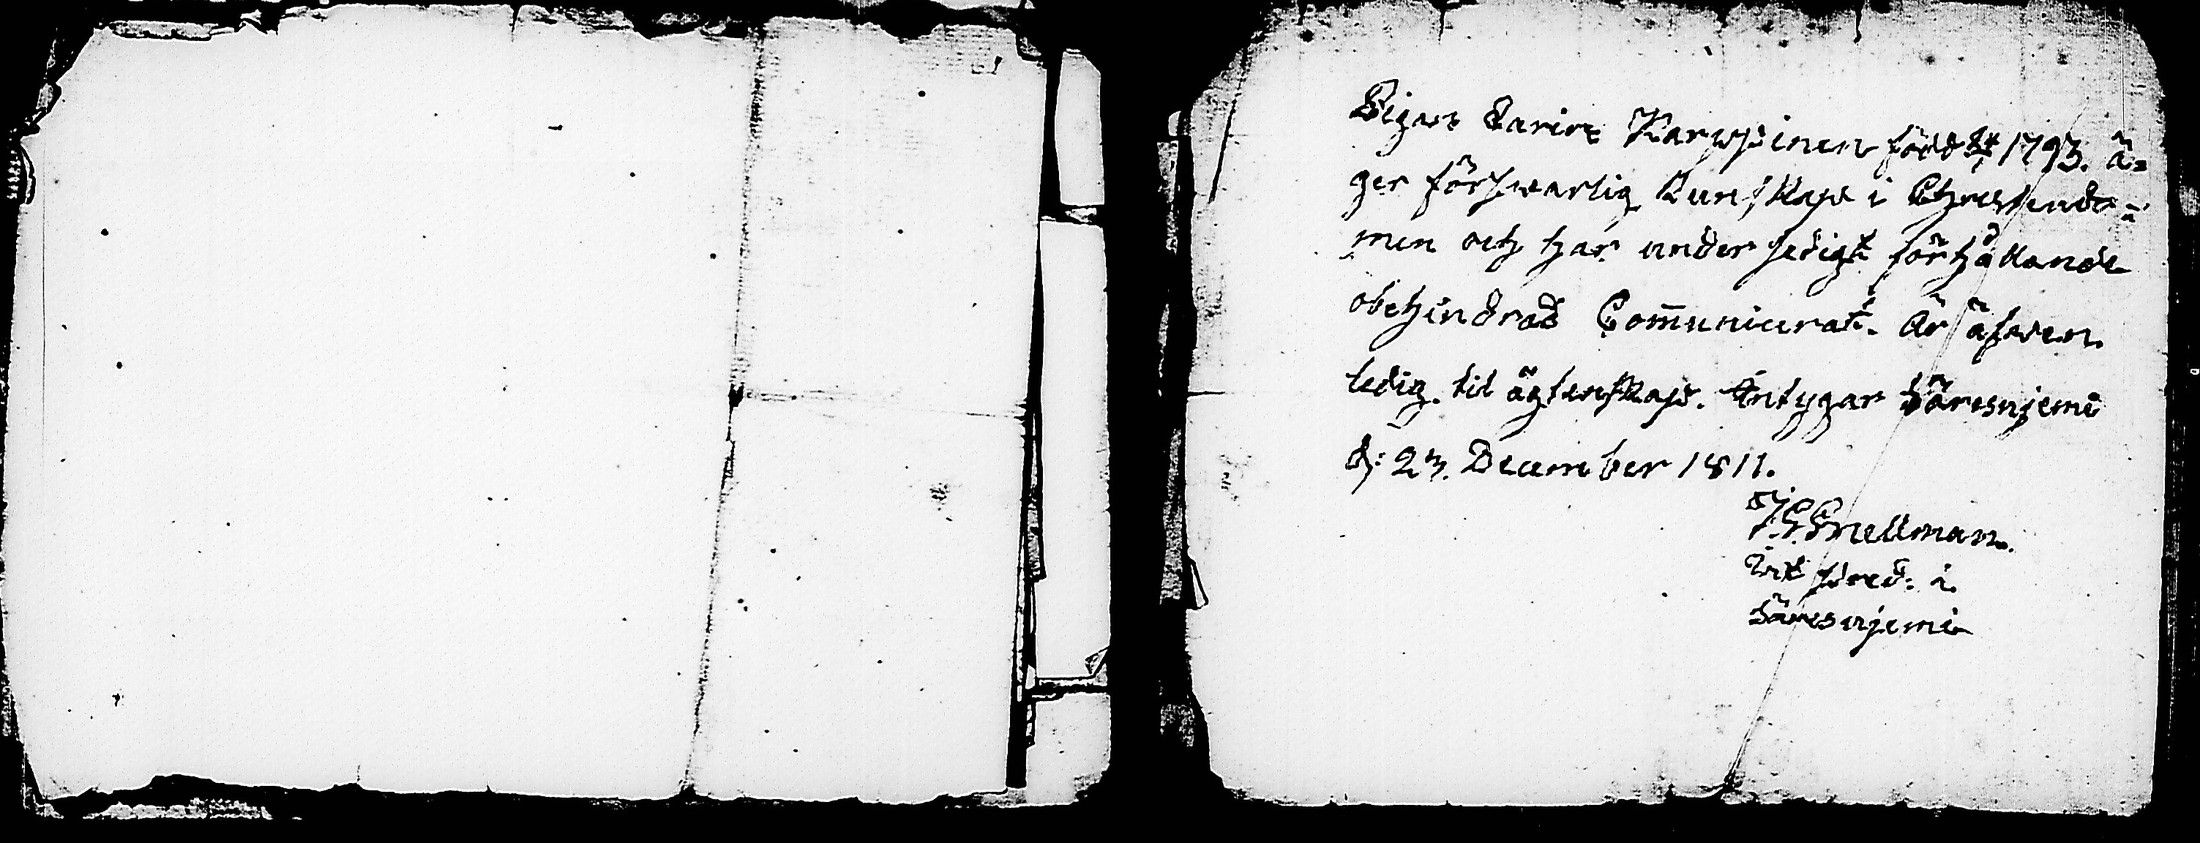 Pigan Carin Karppinen född 1793. ä=
ger försvarlig Kunskap i Christendo=
men och har under sedigt förhållande
obehindrad Com̄unicerat. Är äfven
ledig til ägtenskap. Intygar Säresnjemi
d: 23. December 1811.
J. G. Snellman.
Vit pred: i
Säresnjemi